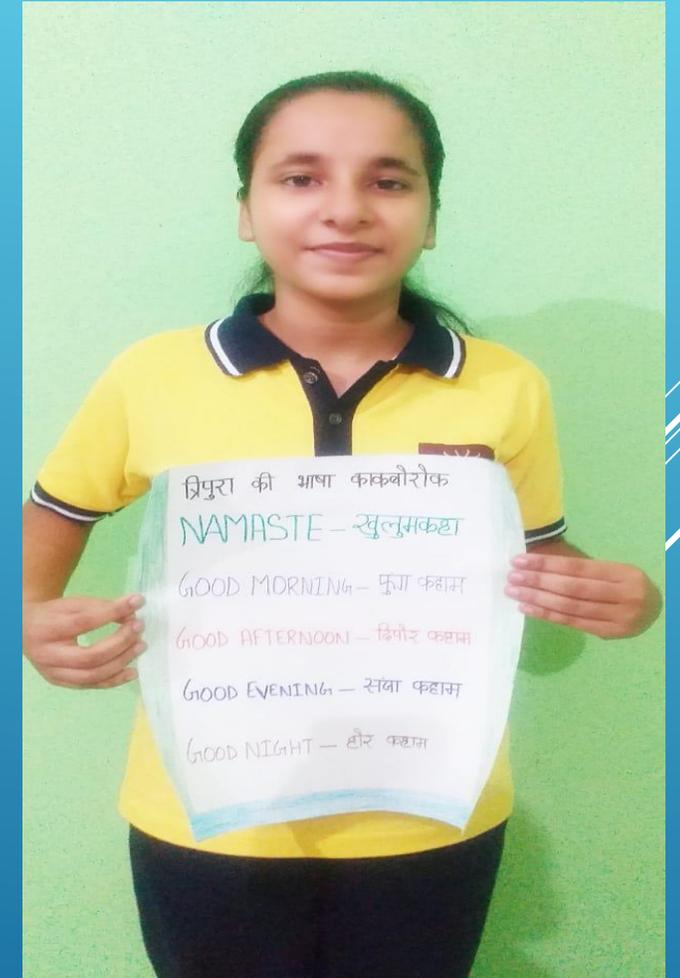 त्रिपुरा की भाषा काकबोरोक
NAMASTE – खुलुमकहा
GOOD MORNING – फुंग कहाम
GOOD AFTERNOON – दिपोर कहाम
GOOD EVENING – संजा कहाम
GOOD NIGHT – होर कहाम